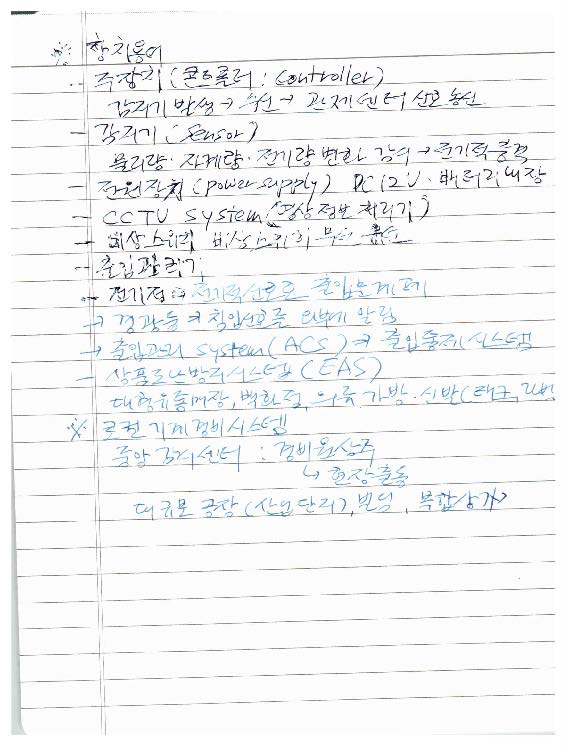 ※ 장치용어
- 주장치 (콘트롤러 : Controller)
감지기 발생 → 수신 → 관제센터 신호 송신
- 감지기 (Sensor)
물리량 · 자계량 · 전기량 변화 감지 → 전기적 출력
- 전원장치 (power supply) DC12V · 배터리내장
- CCTV System (영상정보 처리기)
- 비상스위치 비상스위치 무선
- 출입관리기
- 전기정 → 전기적신호로 출입문개폐
→ 경광등 → 침입신호를 외부에 알림
→ 출입관리 System (ACS) → 출입통제시스템
- 상품도난방지시스템 (EAS)
대형유통매장, 백화점, 의류 가방 · 신발 (태그, 라벨
※ 로컬 기계경비시스템
중앙 감시센터 : 경비원상주
↳ 현장출동
대규모 공장 (산업단지), 빌딩, 복합상가